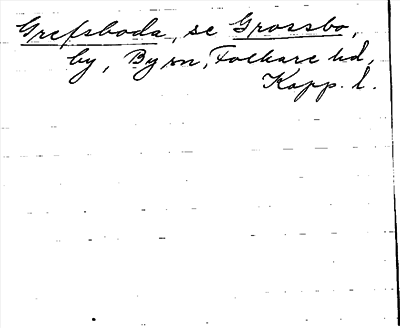 Grefsboda, se Grossbo,
by, By sn, Folkare hd,
Kopp. l.